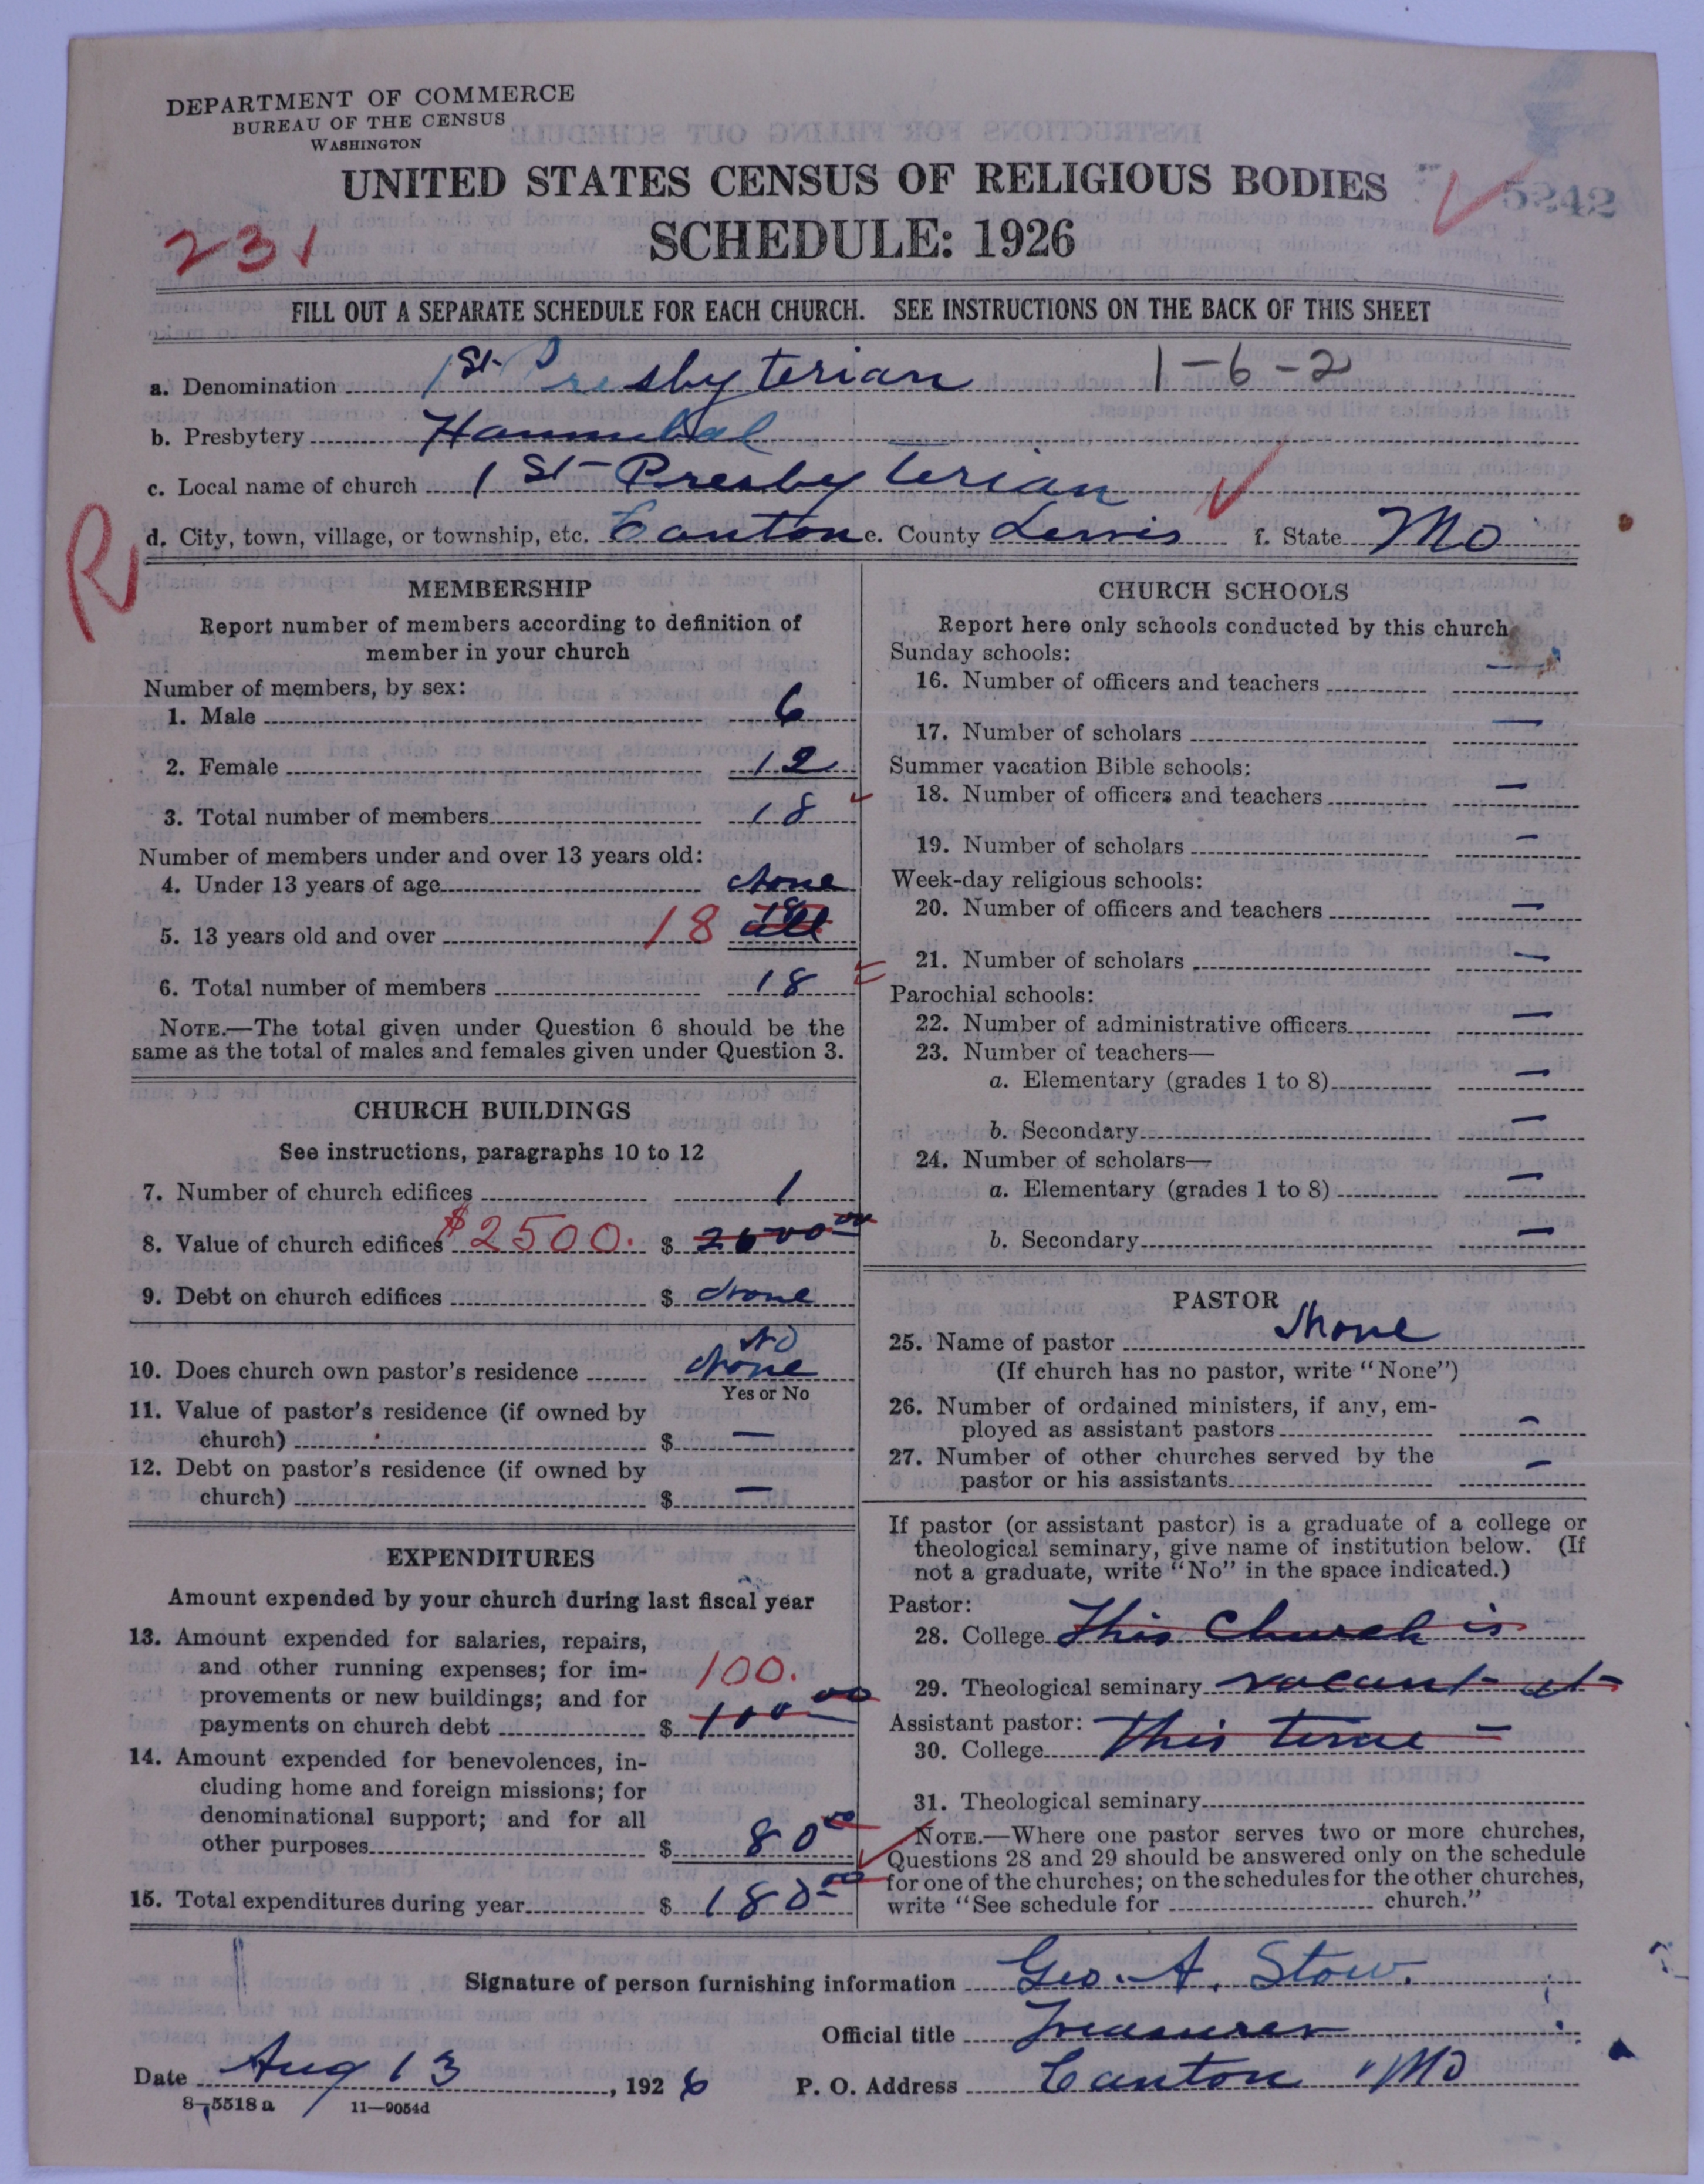 DEPARTMENT OF COMMERCE
BUREAU OF THE CENSUS
WASHINGTON
UNITED STATES CENSUS OF RELIGIOUS BODIES
5242
231
SCHEDULE: 1926
FILL OUT A SEPARATE SCHEDULE FOR EACH CHURCH. SEE INSTRUCTIONS ON THE BACK OF THIS SHEET
a. Denomination 1st Presbyterian 1-6-2
b. Presbytery Hannibal
c. Local name of church 1st Presbyterian
d. City, town, village, or township, etc. Canton e. County Lewis f. State Mo
R
MEMBERSHIP
Report number of members according to definition of
member in your church
Number of members, by sex:
1. Male 6
2. Female 12
3. Total number of members 18
Number of members under and over 13 years old:
4. Under 13 years of age None
5. 13 years old and over 18 18 all
6. Total number of members 18
NOTE.—The total given under Question 6 should be the
same as the total of males and females given under Question 3.
CHURCH BUILDINGS
See instructions, paragraphs 10 to 12
7. Number of church edifices 1
8. Value of church edifices $2500. $ 2500 00
9. Debt on church edifices $ None
No
10. Does church own pastor's residence None
Yes or No
11. Value of pastor's residence (if owned by
church) $ —
12. Debt on pastor's residence (if owned by
church) $ —
EXPENDITURES
Amount expended by your church during last fiscal year
13. Amount expended for salaries, repairs,
and other running expenses; for im-
provements or new buildings; and for 100.
payments on church debt $ 100 00
14. Amount expended for benevolences, in-
cluding home and foreign missions; for
denominational support; and for all
other purposes $ 80 00
15. Total expenditures during year $ 180 00
CHURCH SCHOOLS
Report here only schools conducted by this church
Sunday schools:
16. Number of officers and teachers —
17. Number of scholars —
Summer vacation Bible schools:
18. Number of officers and teachers —
19. Number of scholars —
Week-day religious schools:
20. Number of officers and teachers —
21. Number of scholars —
Parochial schools:
22. Number of administrative officers —
23. Number of teachers—
a. Elementary (grades 1 to 8) —
b. Secondary —
24. Number of scholars—
a. Elementary (grades 1 to 8) —
b. Secondary —
PASTOR
25. Name of pastor None
(If church has no pastor, write "None")
26. Number of ordained ministers, if any, em-
ployed as assistant pastors —
27. Number of other churches served by the
pastor or his assistants —
If pastor (or assistant pastor) is a graduate of a college or
theological seminary, give name of institution below. (If
not a graduate, write "No" in the space indicated.)
Pastor:
28. College This Church is
29. Theological seminary vacant at
Assistant pastor:
30. College This time —
31. Theological seminary
NOTE.—Where one pastor serves two or more churches,
Questions 28 and 29 should be answered only on the schedule
for one of the churches; on the schedules for the other churches,
write "See schedule for church."
Signature of person furnishing information Geo. A. Stow.
Official title Treasurer
Date Aug 13, 1926 P. O. Address Canton Mo
8-5518 a 11—9054d